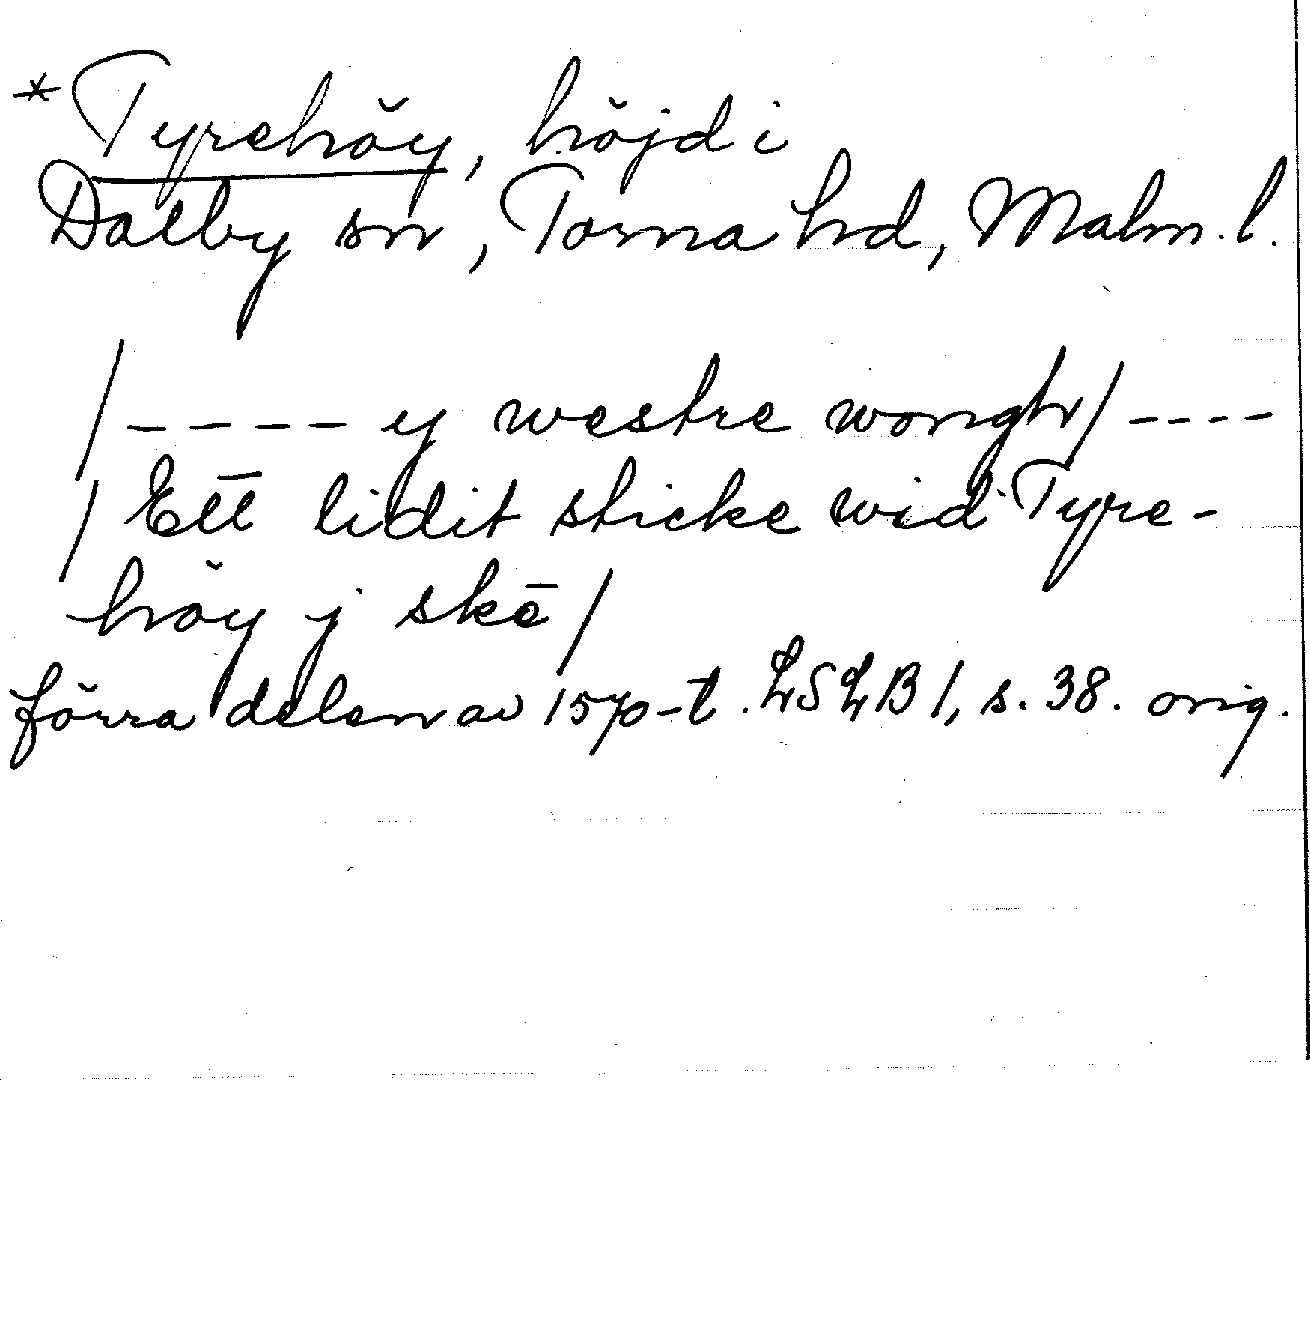 *Tyrehöy, höjd i
Dalby sn, Torna hd, Malm. l.
/ - - - - y westre wongh/ - - - -
/ Ett lidit sticke wid Tyre-
höy j skē/
förra delen av 1570-t. LSLB 1, s. 38. orig.